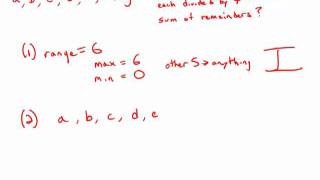 each divided by 7
sum of remainders ?
(1) range = 6
max = 6
min = 0
other 5 → anything
I
(2) a, b, c, d, e